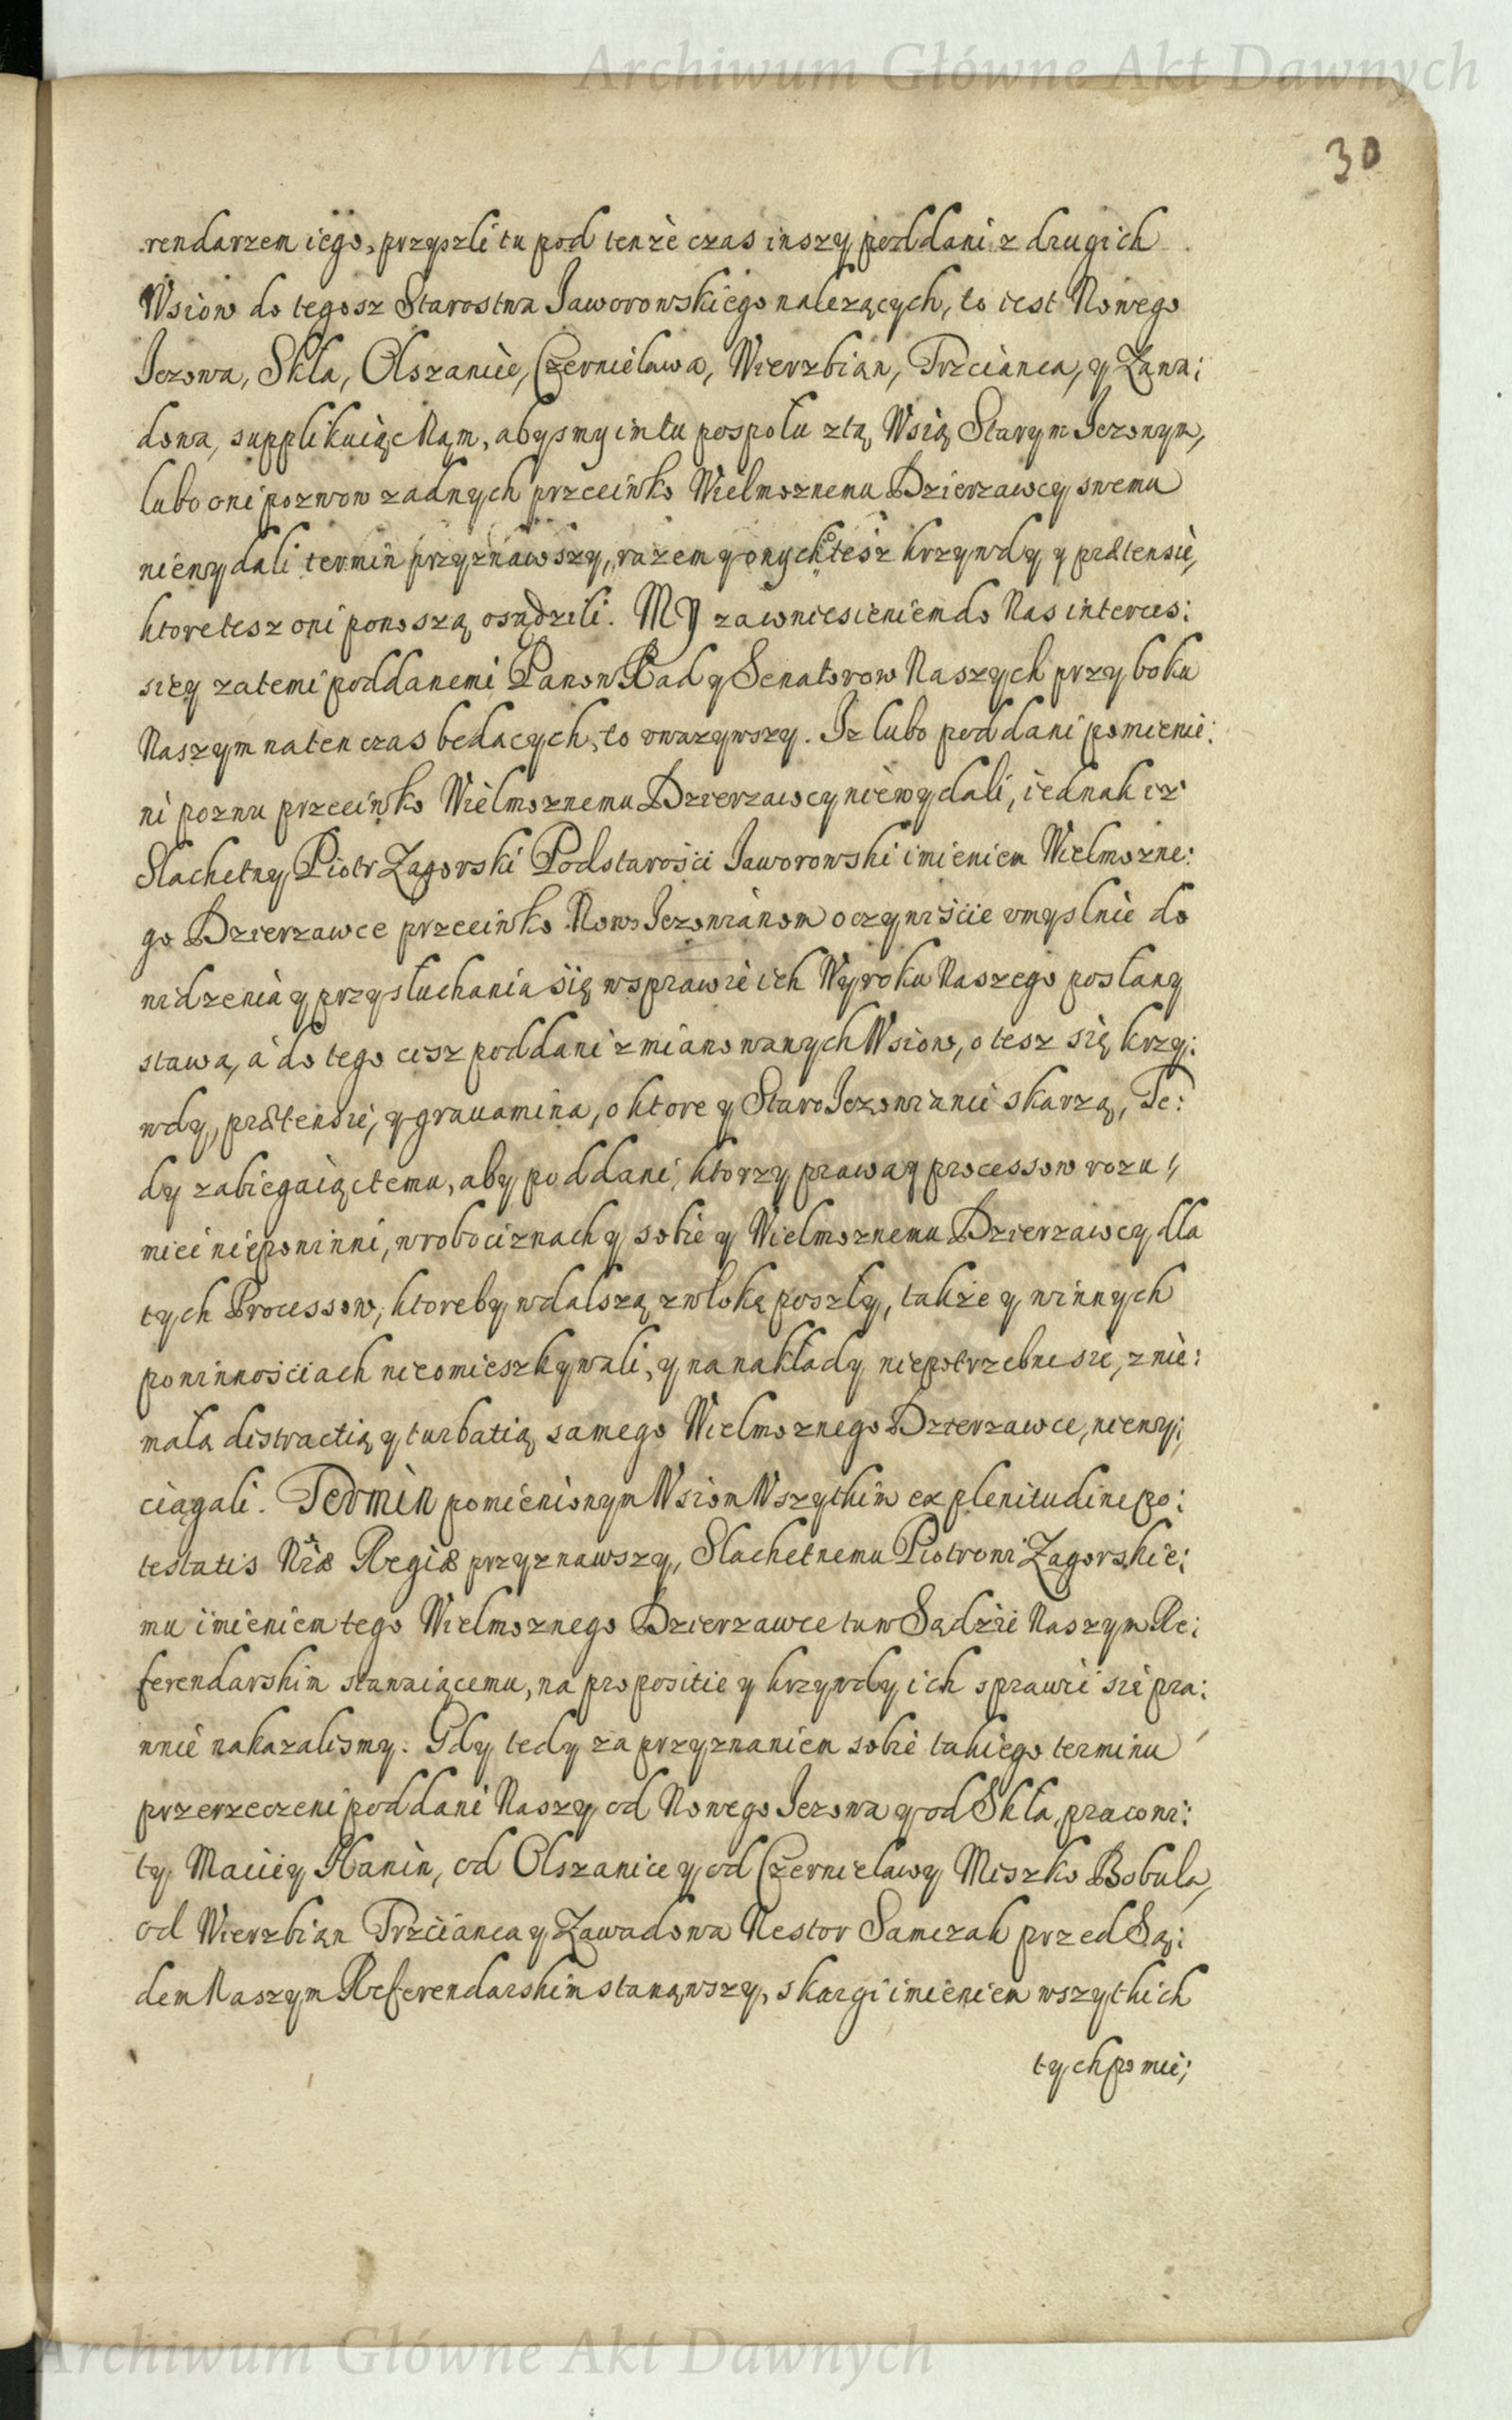 Archiwum Główne Akt Dawnych
30
rendarzem iego, przyszli tu pod tenże czas inszy poddani z drugich
Wsiow do tegosz Starostwa Jaworowskiego należących, to iest Nowego
Jezowa, Skła, Olszanice, Czernielawa, Wierzbian, Trzcianca, y Zawa:
dowa, supplikuiąc Nąm, abysmy im tu pospołu z tą Wsią Starym Jezowym,
lubo oni pozwow zadnych przeciwko Wielmoznemu Dzierzawcy swemu
niewydali termin przyznawszy, razem y onych tesz krzywdy y prætensie,
ktore tesz oni ponoszą osądzili. MY za wniesieniem do Nas interces:
siey za temi poddanemi Panow Rad y Senatorow Naszych przy boku
Naszym na ten czas bedacych, to vwazywszy. Iz lubo poddani pomienie:
ni pozwu przeciwko Wielmoznemu Dzierzawcy niewydali, iednak iz
Slachetny Piotr Zagorski Podstarości Jaworowski imieniem Wielmozne:
go Dzierzawce przeciwko Nowo Jezowianom oczywiście vmyslnie do
widzenia y przysłuchania się w sprawie ich Wyroku Naszego posłany
stawa, a do tego cisz poddani zmianowanych Wsiow, o tesz się krzy:
wdy, prætensie, y grauamina, o ktore y Staro Jezowianie skarzą, Te:
dy zabiegaiąc temu, aby poddani, ktorzy prawa y processow rozu:
miec niepowinni, w robociznach y sobie y Wielmoznemu Dzierzawcy dla
tych Processow, ktoreby w dalszą zwłokę poszły, także y w innych
powinnościach nieomieszkywali, y na nakłady niepotrzebne sie, z nie:
małą distractią y turbatią samego Wielmoznego Dzierzawce, niewy:
ciągali. Termin pomienionym Wsiom Wszytkim ex plenitudine po:
testatis Nræ Regiæ przyznawszy, Slachetnemu Piotrowi Zagorskie:
mu imieniem tego Wielmoznego Dzierzawce tu w Sądzie Naszym Re:
ferendarskim stawaiącemu, na propositie y krzywdy ich sprawić sie pra:
wnie nakazalismy. Gdy tedy za przyznaniem sobie takiego terminu
przerzeczeni poddani Naszy od Nowego Jezowa y od Skła, pracowi:
ty Maciey Hanin, od Olszanice y od Czernielawy Miszko Bobula,
od Wierzbian Trzcianca y Zawadowa Nestor Samczak przed Są:
dem Naszym Referendarskim stanąwszy, skargi imieniem wszytkich
tych pomie:
Archiwum Główne Akt Dawnych